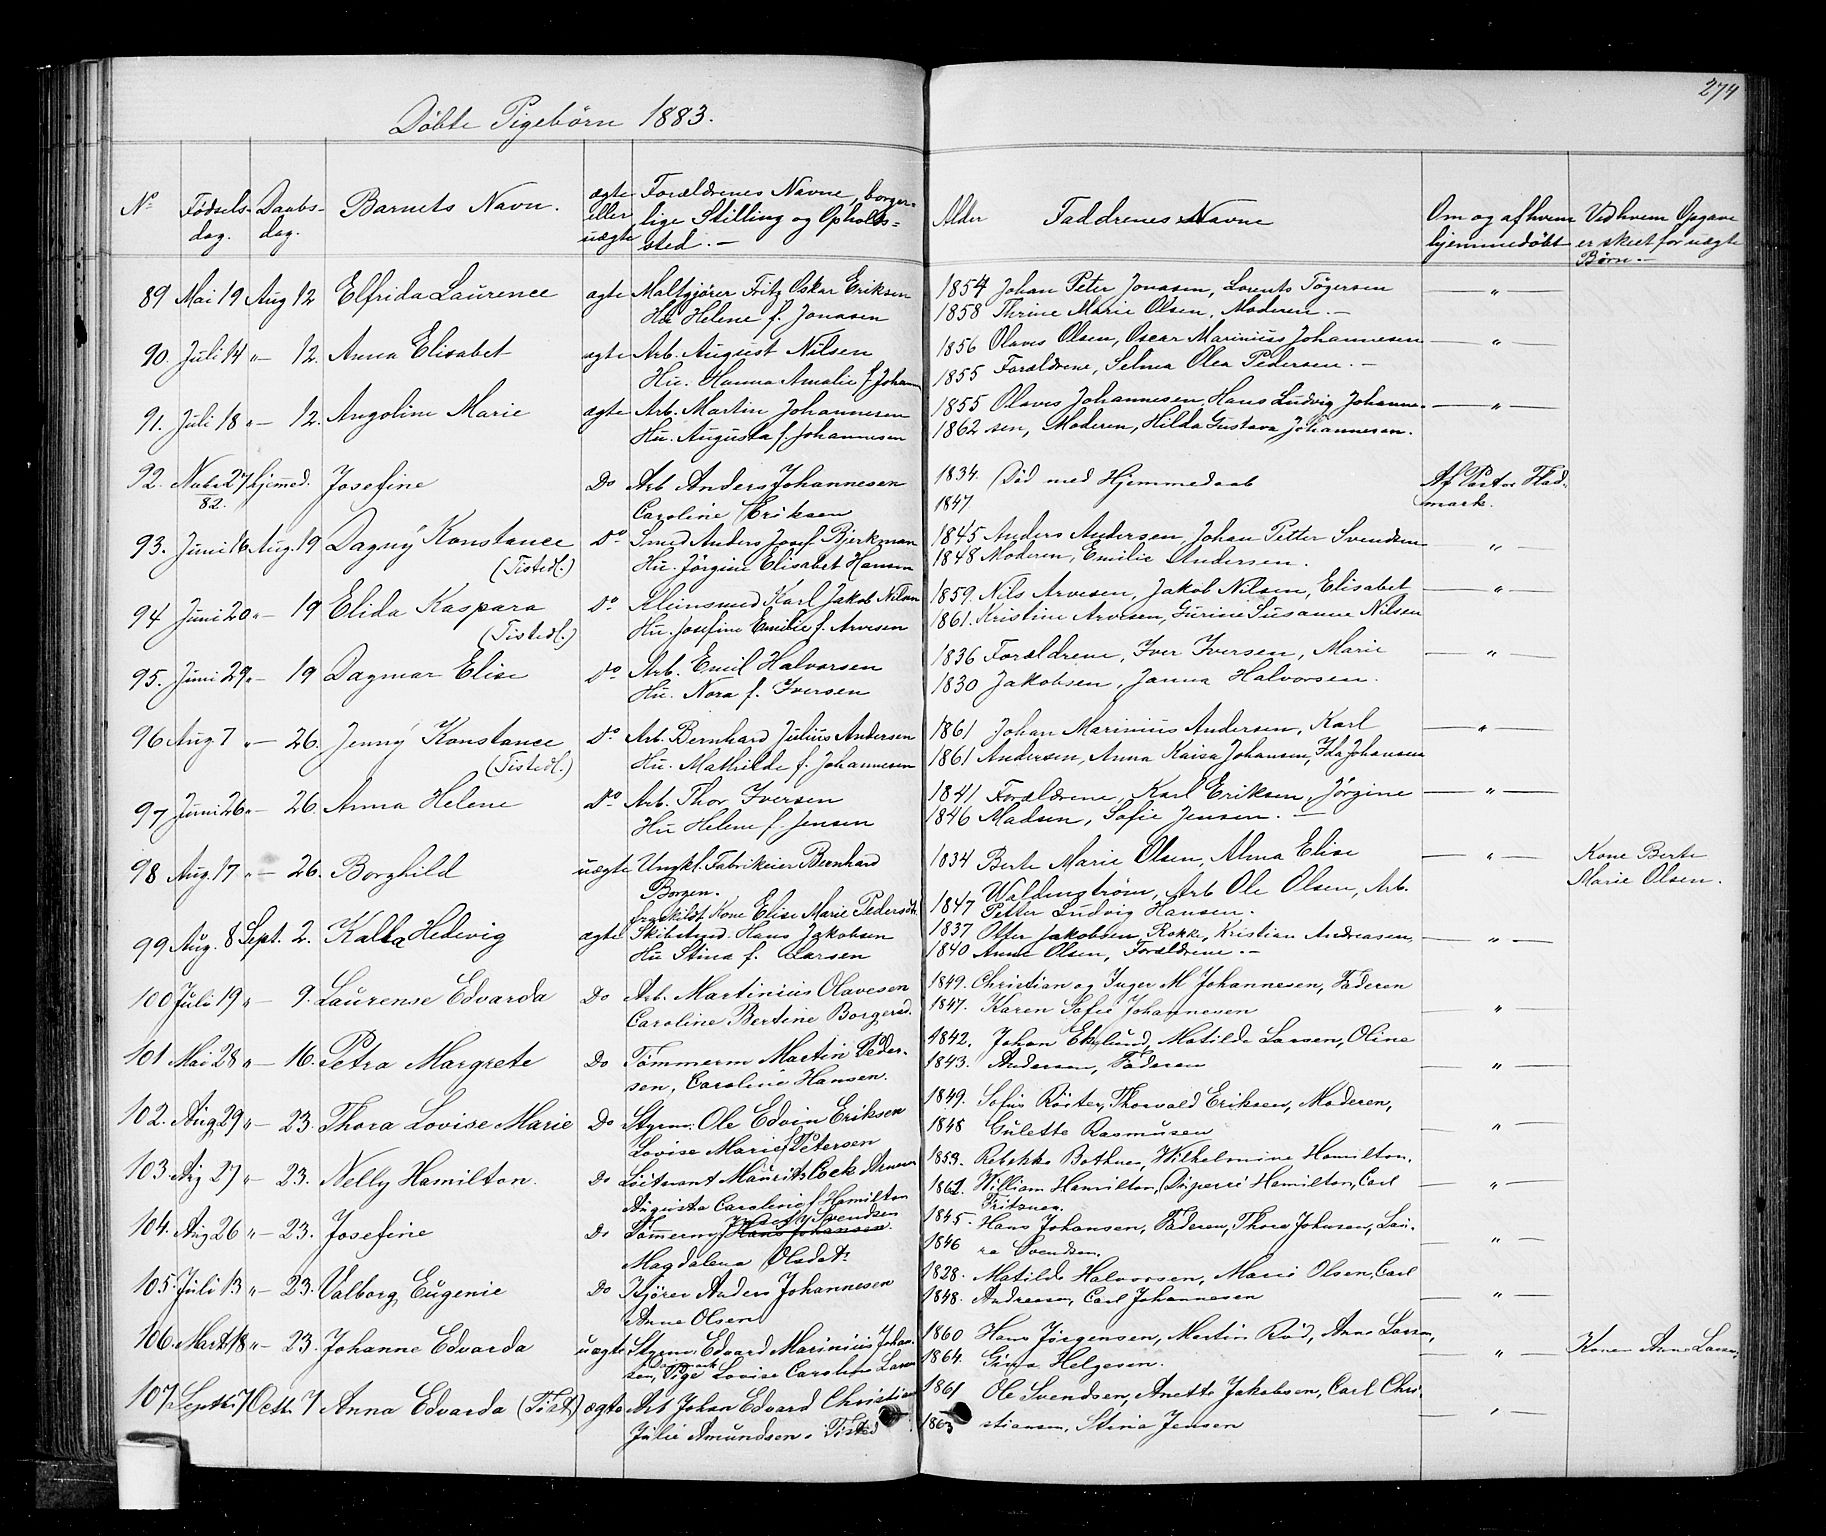 274
Döbte Pigebörn 1883.
No Födsels-dag. Daabs-dag. Barnets Navn. ægte eller uægte Forældrenes Navne, borger-lige Stilling og Opholds-sted. - Alder Faddrenes Navne Om og af hvem hjemmedöbt Ved hvem Opgave er skeet for uægte Börn. -
89 Mai 19 Aug 12 Elfrida Laurence ægte Maltgjörer Fritz Oskar Eriksen 1854 Johan Peter Jonasen, Lorents Tögersen — " —
Hu Helene f. Jonasen 1858 Thrine Marie Olsen, Moderen. -
90. Juli 14 " - 12. Anna Elisabet ægte Arb. August Nilsen 1856 Olaves Olsen, Oscar Marinius Johannesen — " —
Hu. Hanna Amalie f. Johann 1855 Forældrene, Selma Olea Pedersen. -
91. Juli 18 " - 12. Angoline Marie ægte Arb. Martin Johannesen 1855 Olaves Johannesen, Hans Ludvig Johanne- — " —
Hu. Augusta f. Johannesen 1862 sen, Moderen, Hilda Gustava Johannesen.
92. Nvbr 27 hjemmed. Josefine Do Arb Anders Johannesen 1834. Död med Hjemmedaab Af Pastor Flad-
82. Caroline Eriksen 1847 mark.
93. Juni 16 Aug. 19 Dagny Konstance Do Smed Anders Josef Bjerkman 1845 Anders Andersen, Johan Petter Svendsen — " —
(Tistedl.) Hu. Jörgine Elisabet Hansen 1848 Moderen, Emilie Andersen.
94 Juni 20 " - 19 Elida Kaspara Do Kleinsmed Karl Jakob Nilsen 1859. Nils Arvesen, Jakob Nilsen, Elisabet — " —
(Tistedl.) Hu. Josefine Emilie f. Arvesen 1861. Kristine Arvesen, Gurine Susanne Nilsen
95. Juni 29 " - 19 Dagmar Elise Do Arb. Emil Halvorsen 1836 Forældrene, Iver Iversen, Marie — " —
Hu. Nora f. Iversen 1830 Jakobsen, Janna Halvorsen.
96 Aug. 7 " - 26. Jenny Konstance Do Arb. Bernhard Julius Andersen 1861 Johan Marinius Andersen, Karl — " —
(Tistedl.) Hu. Mathilde f. Johannesen 1861 Andersen, Anna Kaisa Johansen, Ida Johansen
97 Juni 26 " - 26. Anna Helene Do Arb. Thor Iversen 1841 Forældrene, Karl Eriksen, Jörgine — " —
Hu Helene f. Jensen 1846 Madsen, Sofie Jensen. -
98 Aug. 17 " - 26. Borghild uægte Ungkl. Fabrikeier Bernhard 1834 Berte Marie Olsen, Alma Elise — " — Kone Berte
Borgen. Waldenström, Arb Ole Olsen, Arb. Marie Olsen.
fraskildt Kone Elise Marie Pedersdt. 1847 Petter Ludvig Hansen.
99 Aug. 8 Sept. 2. Kalla Hedevig ægte Skibstmd. Hans Jakobsen 1837 Offer Jakobsen Rokke, Kristian Andreasen, — " —
Hu Stina f. Larsen 1840 Anne Olsen, Forældrene. -
100 Juli 19 " - 9. Laurense Edvarda Do Arb. Martinius Olavesen 1849. Christian og Inger M Johannesen, Faderen
Caroline Bertine Borgersd. 1847. Karen Sofie Johannesen — " —
101 Mai 28 " - 16. Petra Margrete Do Tömmerm Martin Peder- 1842. Johan Eklund, Matilde Larsen, Oline
sen, Caroline Hansen. 1843. Andersen, Faderen — " —
102. Aug 29 " - 23. Thora Lovise Marie Do Styrm. Ole Edvin Eriksen 1849. Sofus Röster, Thorvald Eriksen, Moderen,
Lovise Marie f Petersen 1848 Gulette Rasmusen — " —
103. Aug 27 " - 23. Nelly Hamilton. Do Löitnant Maurits Cock 1853. Rebekka Bothner, Wilhelmine Hamilton,
Augusta Caroline f. Hamilton 1862. William Hamilton, Hamilton, Carl — " —
Fritsner.
104. Aug 26 " - 23. Josefine Do Tömerm Josef M Svendsen Hans Johansen 1845. Hans Johansen, Faderen, Thora Johnsen, Lau-
Magdalena Olsdat. 1846 ra Svendsen. — " —
105. Juli 13 " - 23. Valborg Eugenie Do Kjörer Anders Johannesen 1828. Matilde Halvorsen, Marie Olsen, Carl
Anne Olsen 1848. Andresen, Carl Johannesen — " —
106. Marts 18 " - 23. Johanne Edvarda uægte Styrm. Edvard Marinius Johan- 1860 Hans Jörgensen, Martin Röd, Anne Larsen,
sen, Pige Lovise Caroline Larsen 1864. Gina Helgesen. — " — Konen Anne Larsen,
107. Septbr 7 Octb. 7 Anna Edvarda (Tist.) ægte Arb Johan Edvard Christian 1861 Ole Svendsen, Anette Jakobsen, Carl Chri-
Julie Amundsen. Tisted 1863 stiansen, Stina Jensen — " —